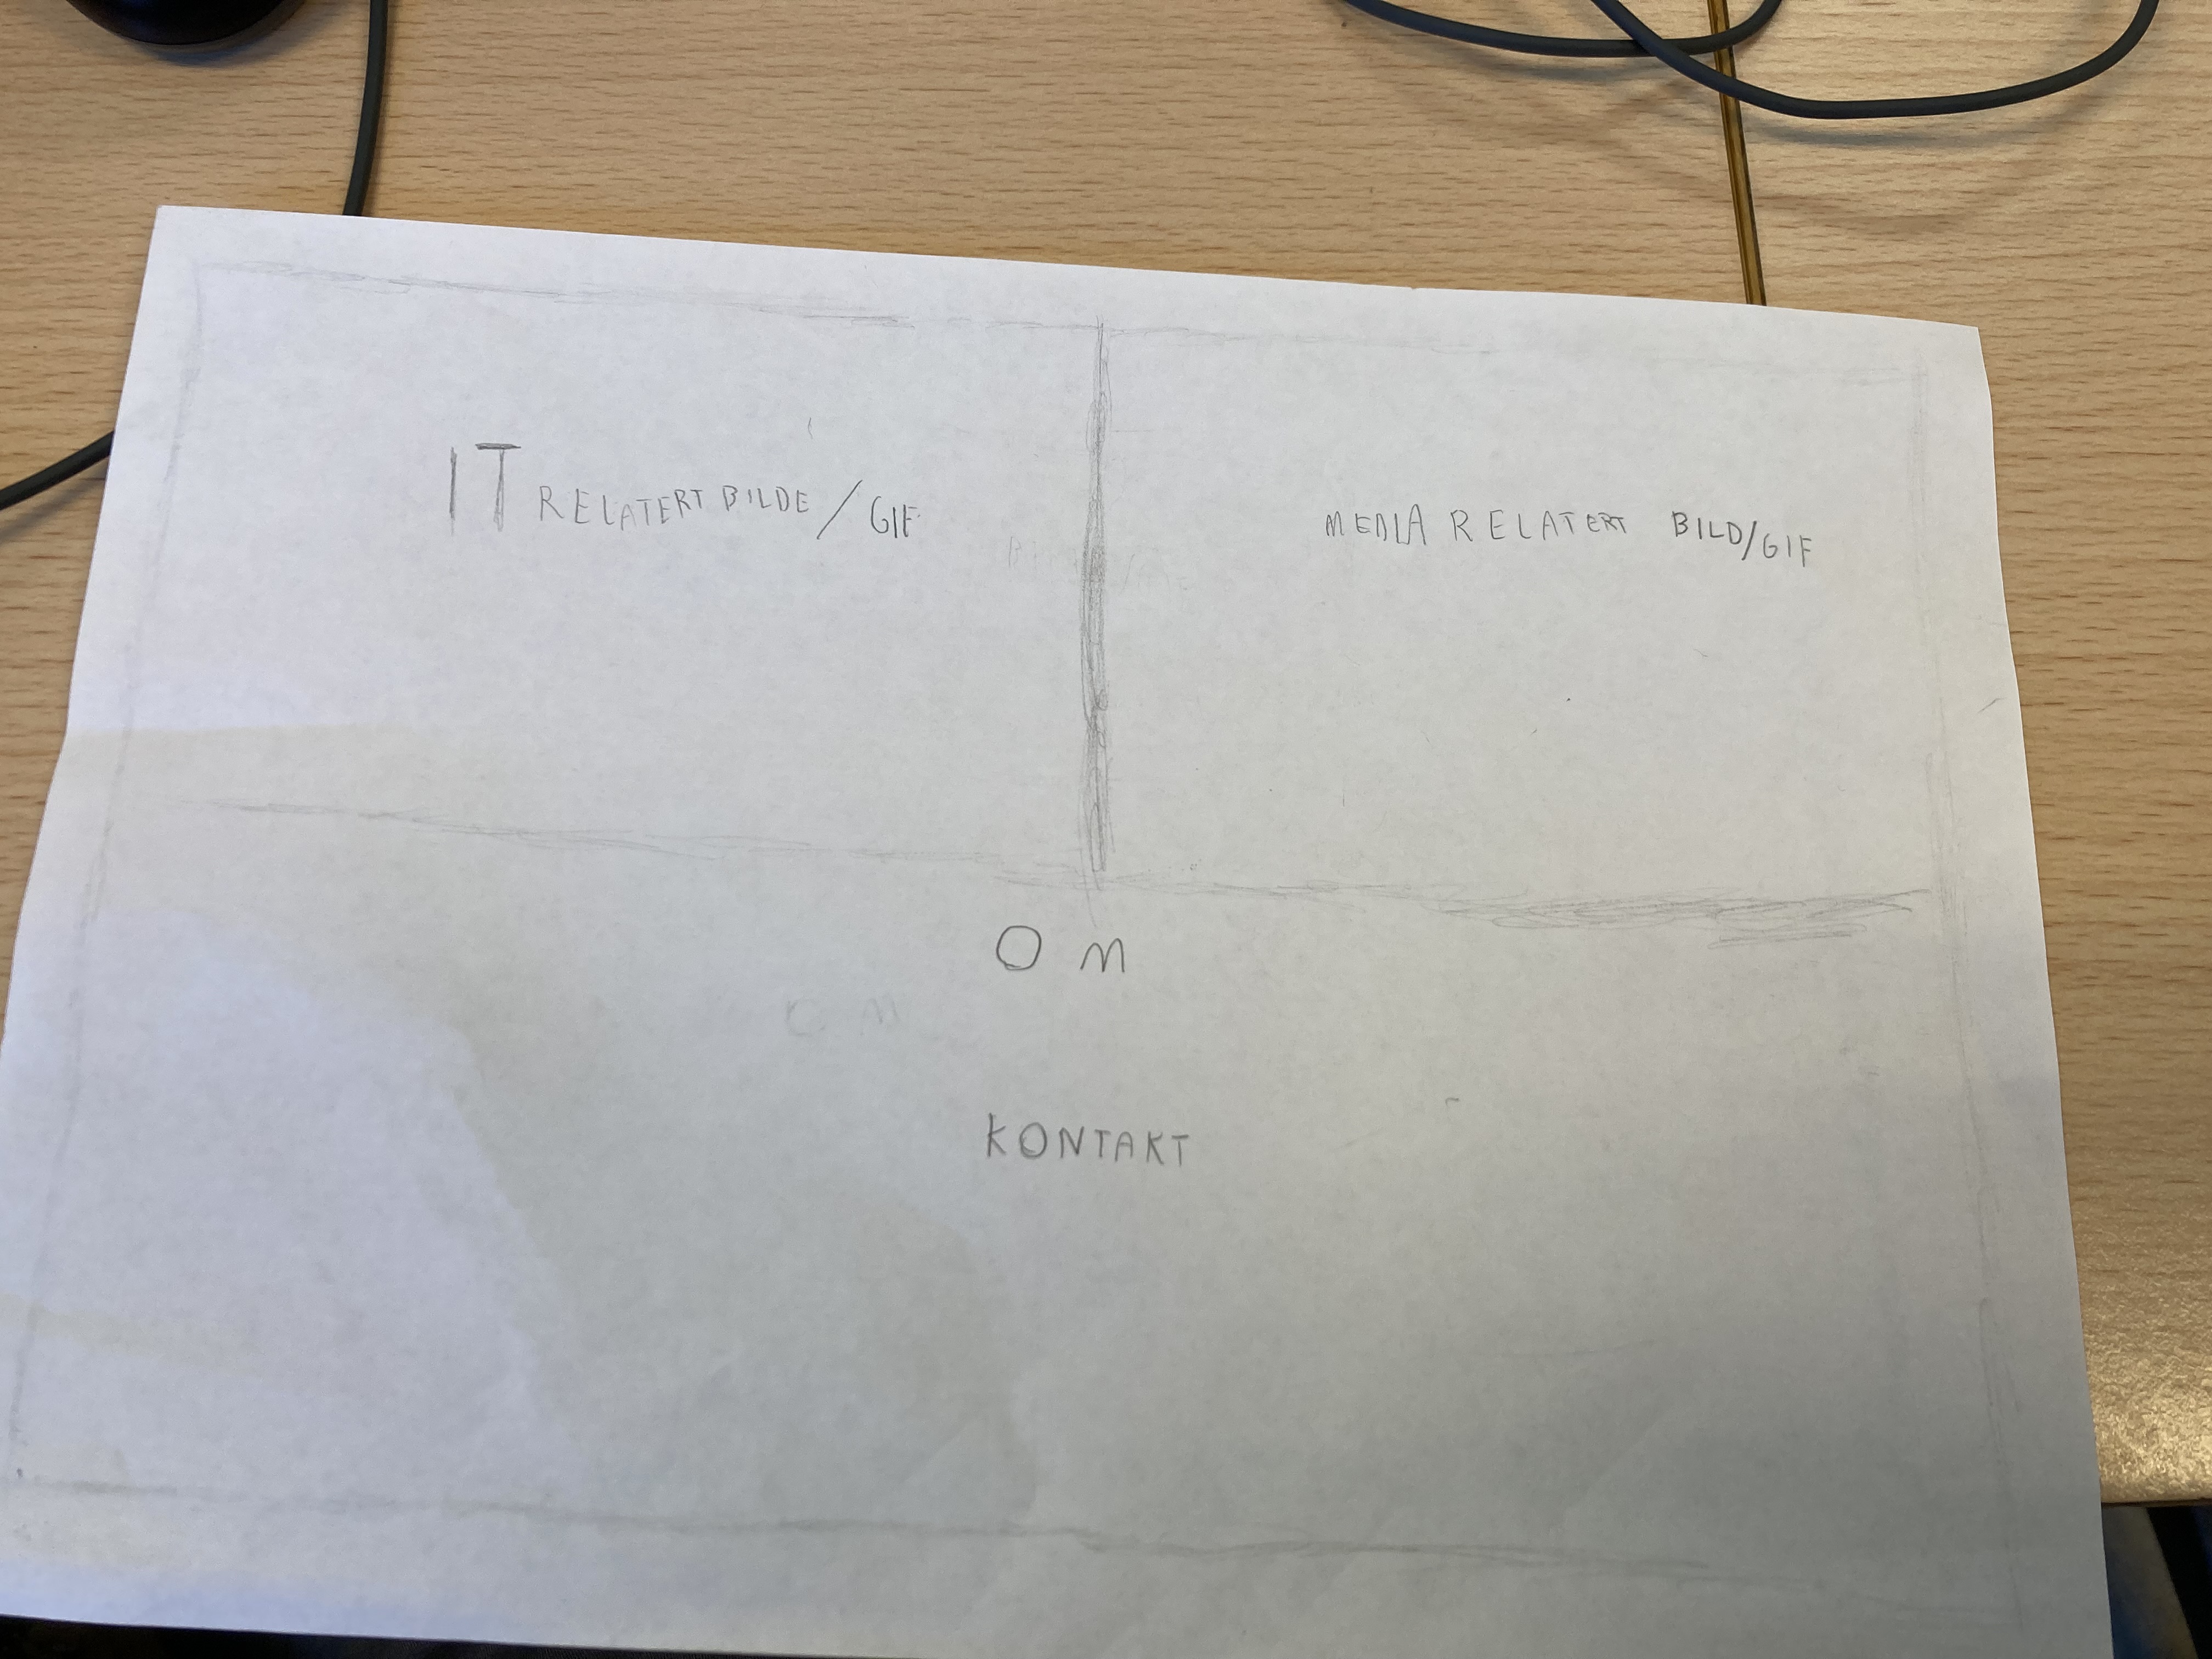 IT RELATERT BILDE/GIF
MEDIA RELATERT BILD/GIF
OM
KONTAKT